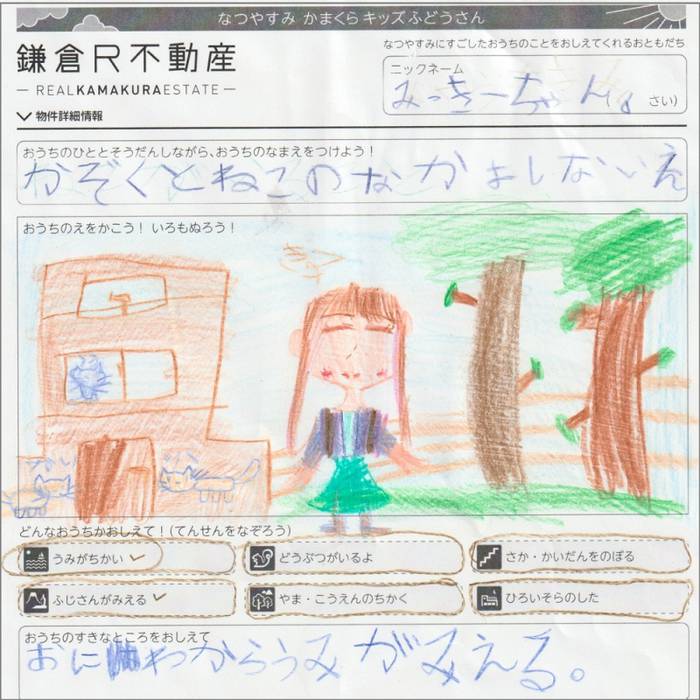 なつやすみ かまくら キッズ ふどうさん
鎌倉R不動産
— REALKAMAKURAESTATE —
物件詳細情報
なつやすみにすごしたおうちのことをおしえてくれるおともだち
ニックネーム
みっきーちゃん(8 さい)
おうちのひととそうだんしながら、おうちのなまえをつけよう！
かぞくとねこのなかよしないえ
おうちのえをかこう！ いろもぬろう！
どんなおうちかおしえて！(てんせんをなぞろう)
うみがちかい どうぶつがいるよ さか・かいだんをのぼる
ふじさんがみえる やま・こうえんのちかく ひろいそらのした
おうちのすきなところをおしえて
おにわからうみがみえる。